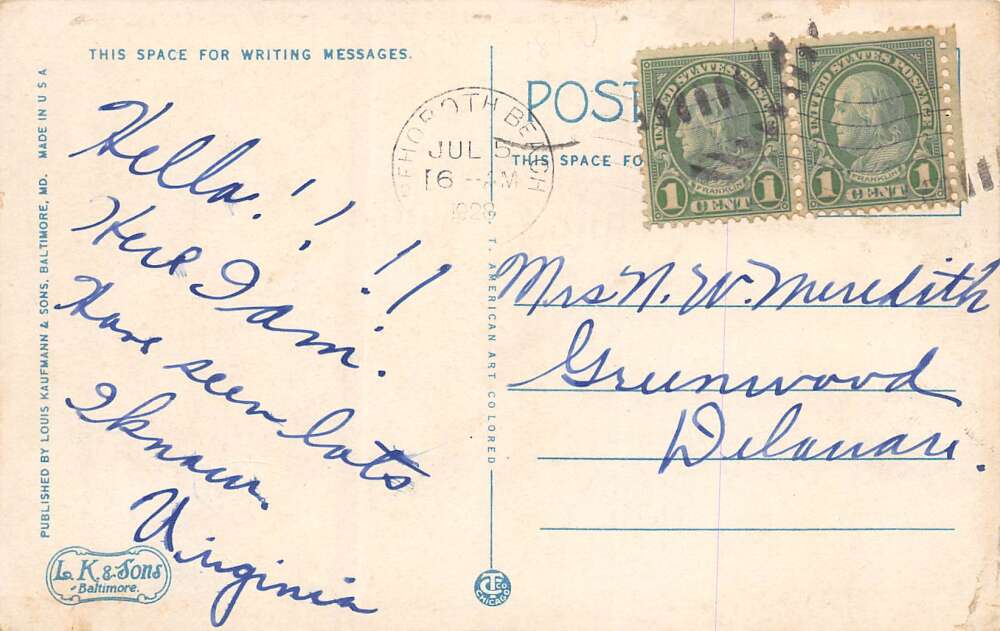 THIS SPACE FOR WRITING MESSAGES.
Hello!!
Here I am!!!
Have seen lots
I know.
Virginia
PUBLISHED BY LOUIS KAUFMANN & SONS, BALTIMORE, MD. MADE IN U S A
L. K. & Sons
Baltimore.
C. T. AMERICAN ART COLORED
CT CO
CHICAGO
POST
THIS SPACE FO
HOBOTH BEACH
JUL 5
6 - AM
UNITED STATES POSTAGE
FRANKLIN
1 CENT 1
UNITED STATES POSTAGE
FRANKLIN
1 CENT 1
Mrs N. W. Meredith
Greenwood
Delaware.